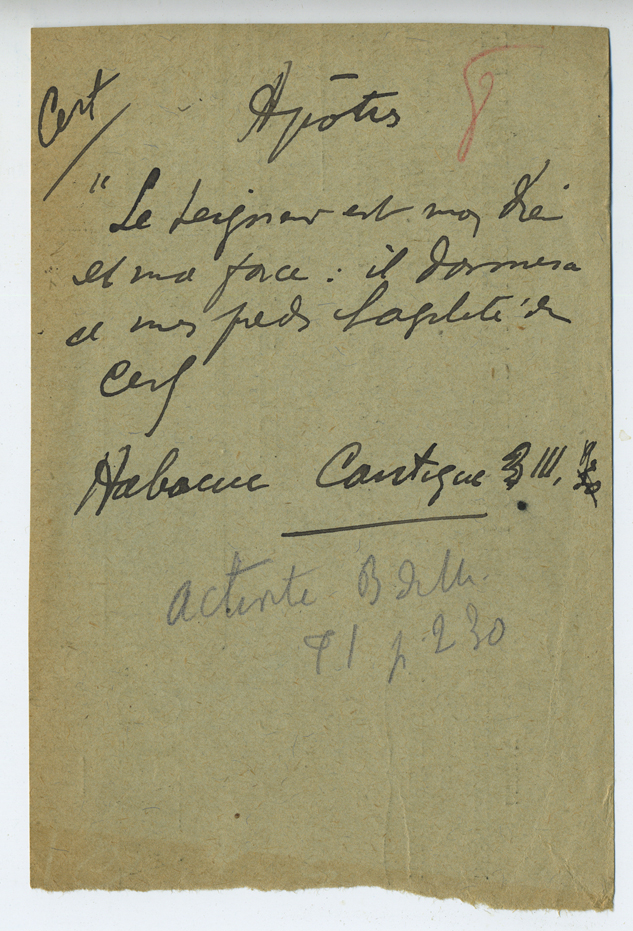 Cerf
Apôtres
"Le Seigneur est mon Dieu
et ma force : il donnera
à mes pieds l'agilité du
Cerf
Habacuc Cantique III,
activité
T I p 230